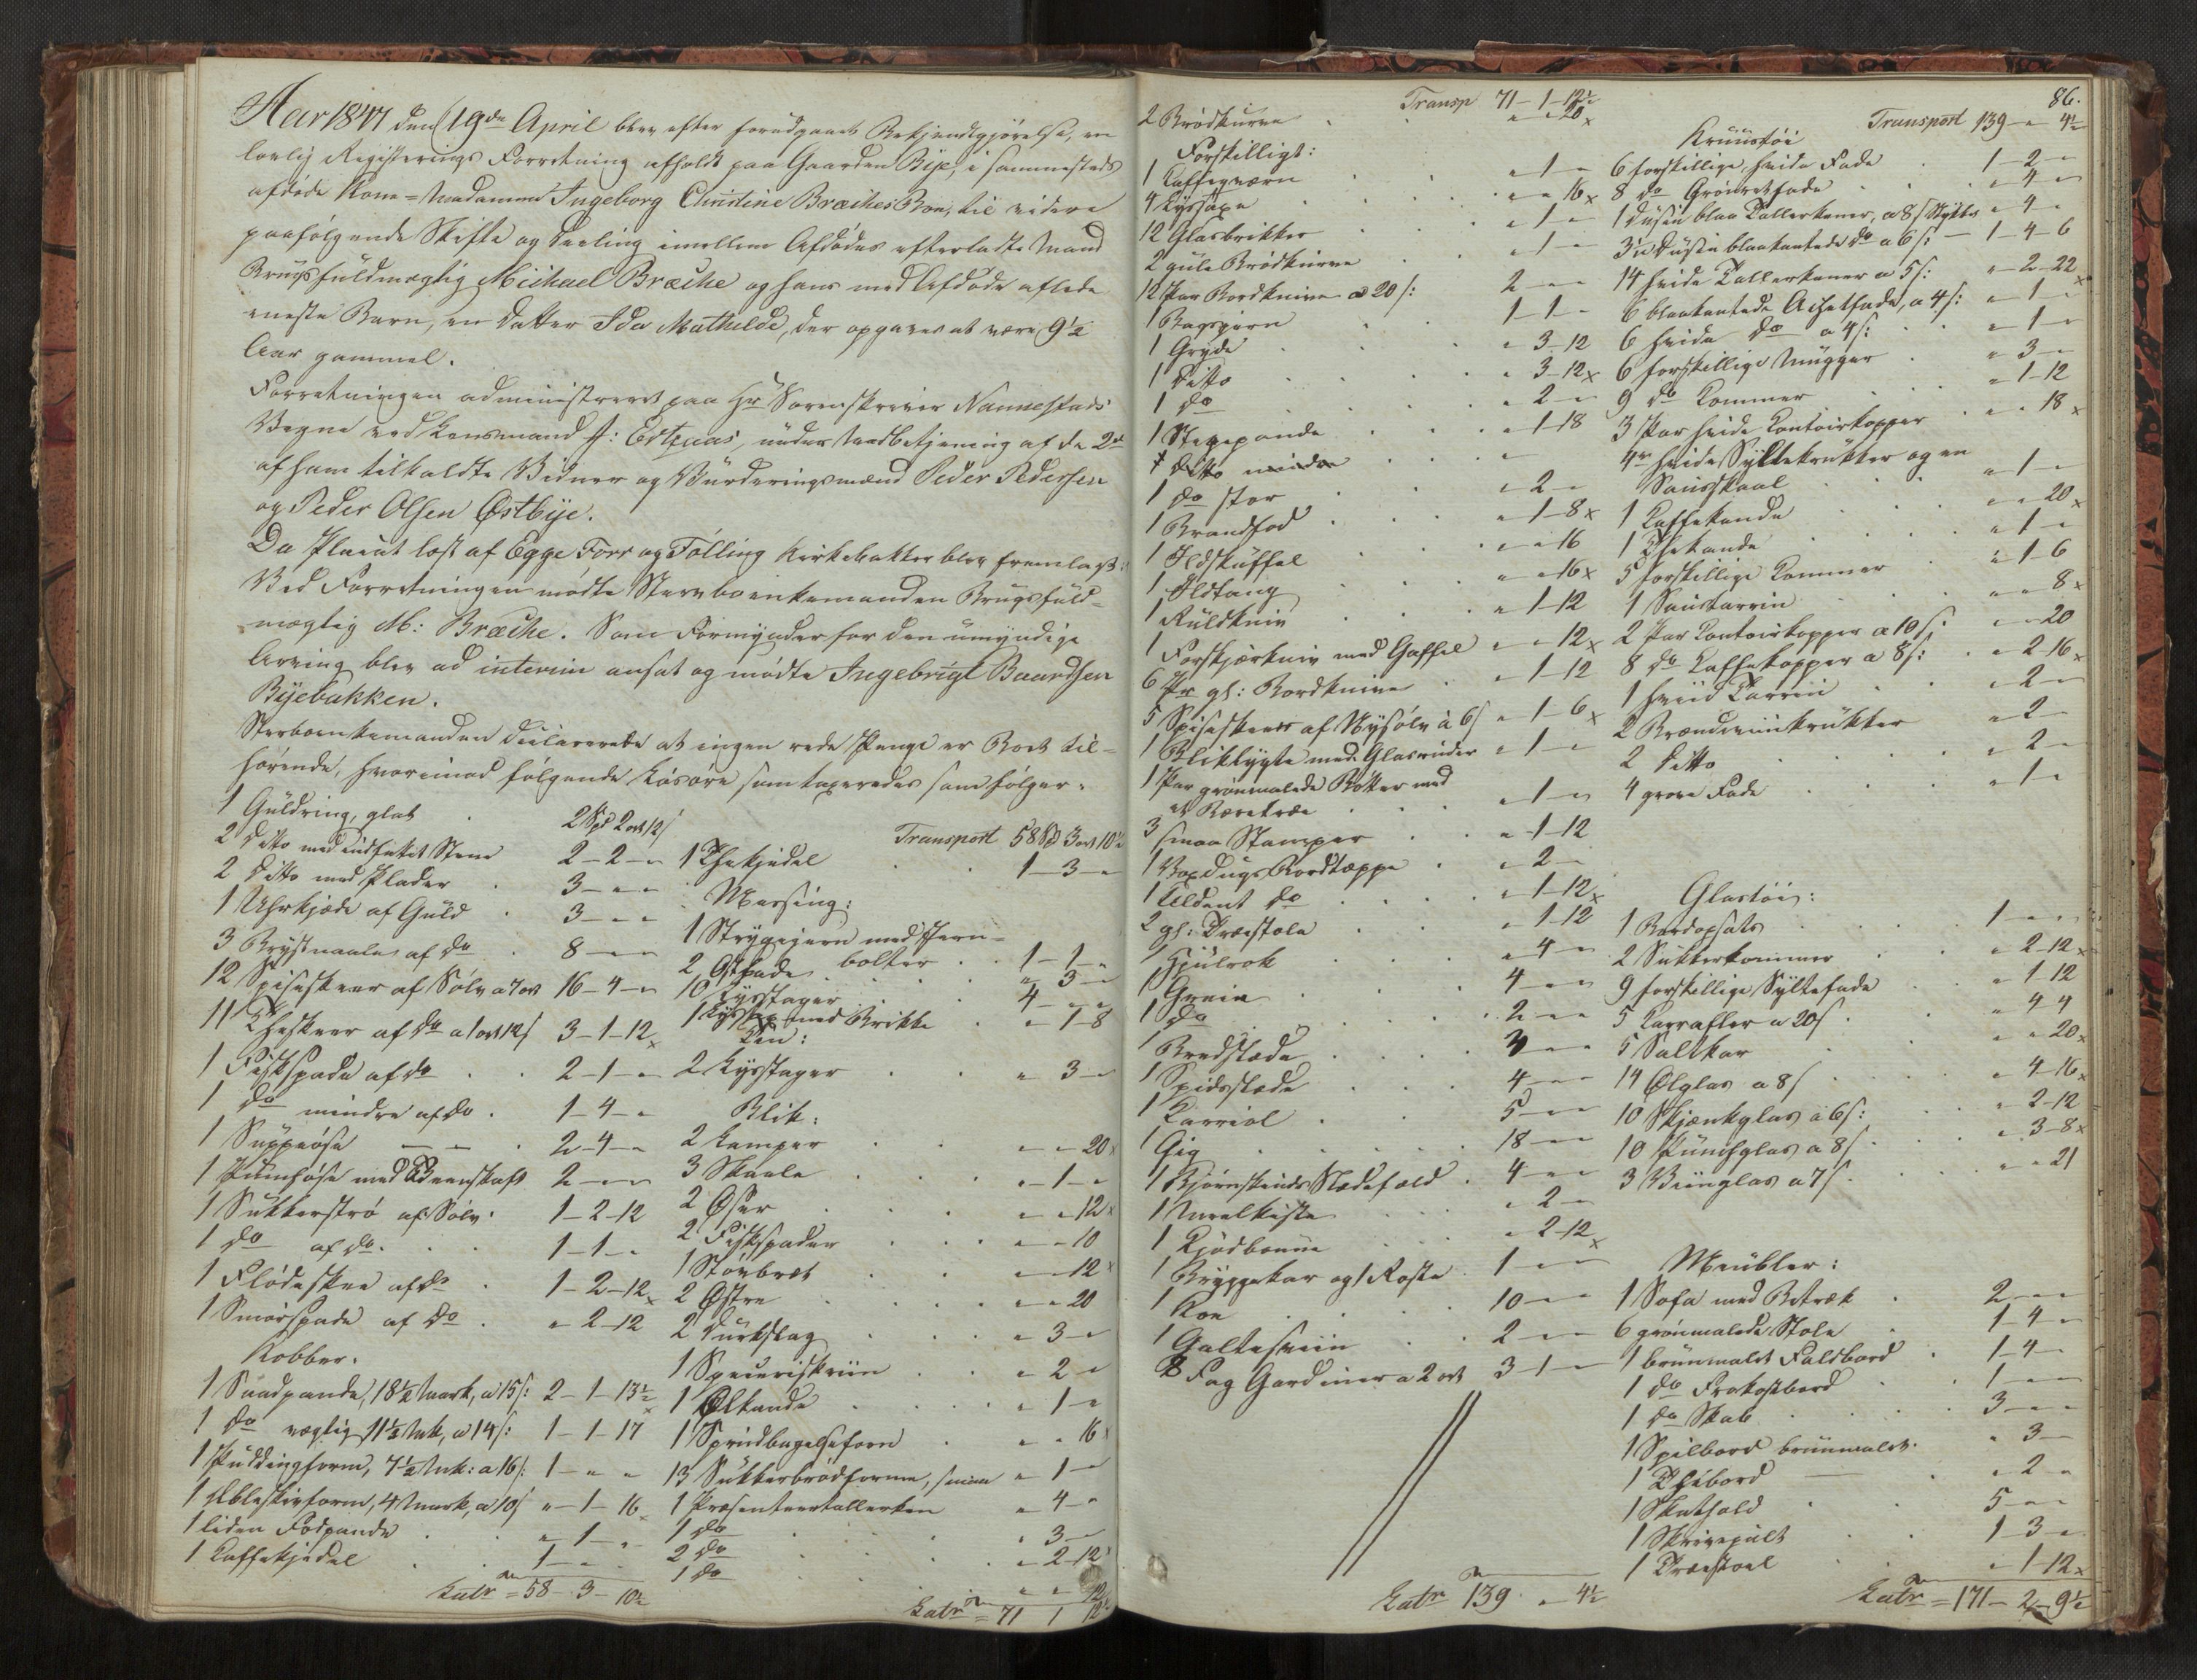 Aar 1847 den 19de April blev efter forudgaaet Bekjendtgjörelse, en
lovlig Registerings Forretning afholdt paa Gaarden Bye, i sammesteds
afdöde Kone = Madamme Ingeborg Christine Bræches Boe, til videre
paafölgende Skifte og Deeling imellem Afdödes efterladte Mand
Brugsfuldmægtig Michael Bræche og hans med Afdöde aflede
eneste Barn, en Datter Ida Mathilde, der opgaves at være 9½
Aar gammel.
Forretningen administreret paa Hr Sorenskriver Nannestads
Vegne ved Lensmand J: Estenas, under Medbetjening af de 2de
af ham tilkaldte Vidner og Vurderingsmænd Peder Pedersen
og Peder Olsen Østbye.
Da Placat læst af Egge Forr og Fölling Kirkebakker blev fremlagt:
Ved Forretningen mödte Stervboenkemanden Brugsfuld-
mægtig M: Bræche. Som Formynder for den umyndige
Arving blev ad interim ansat og mödte Ingebrigt Baardsen
Byebakken.
Sterboenkemanden declarerede at ingen rede Penge er Boet til-
hörende, hvorimod fölgende Lösöre som taxeredes som fölger.
1 Guldring, glat 2 Spd 2 ort 12 s
2 Ditto med indfattet Stene 2-2-"
2 Ditto med Plader 3-"-"
1 Uhrkjæde af Guld 3-"-"
3 Brystnaale af do 8-"-"
12 Spiseskeer af Sölv a 7 ort 16-4-"
11 Theskeer af do a 1 ort 12 s 3-1-12
1 Fiskspade af do 2-1-"
1 do mindre af do 1-4-"
1 Suppeöse 2-4-"
1 Puncheöse med Beenskaft 2-"-"
1 Sukkerströ af Sölv 1-2-12
1 do af do 1-1-"
1 Flödeskee af do 1-2-12
1 Smörspade af do "-2-12
Kobber.
1 Saadpande, 18½ Mark, a 15 s: 2-1-13½
1 do vægtig 11½ Mk, a 14 s: 1-1-17
1 Puddingform, 7½ Mk: a 16 s: 1-"-"
1 Æbleskivform, 4 Mark, a 10 s "-1-16
1 liden Fodpande "-1-"
1 Kaffekjedel 1-"-"
Latr = 58-3-10½
Transport 58 Spd 3 ort 10½
1 Thekjedel 1-3-"
Messing:
1 Strygejern med Jern-
bolter 1-1-"
2 Ostfade "-3-"
10 Lysstager 4-"-"
1 Lyssax med Brikke "-1-8
Tin:
2 Lysstager "-3-"
Blik:
2 Lamper "-"-20
3 Skaale "-1-"
2 Øser "-"-12
2 Fiskspader "-"-10
1 Stövbret "-"-12
2 Østre "-"-20
2 Durkslag "-3-"
1 Specieriskriin "-2-"
1 Ølkande "-1-"
1 Sprudbagelseform "-"-16
13 Sukkerbrödforme, smaa "-1-"
1 Præsenteertallerken "-4-"
1 do "-3-"
2 do "-2-12
1 do "-"-12
Latr = 71 1 12½
86.
Transp 71-1-12½
2 Brödkurve "-"-20
Forskilligt:
1 Kaffeqværn "-1-"
4 Lyssaxe "-"-16
12 Glasbrikker "-1-"
2 gule Brödkurve "-1-"
12 Par Bordknive a 20 s: 2-"-"
1 Bagejern 1-1-"
1 Gryde "-3-12
1 Ditto "-3-12
1 do "-2-"
1 Stegepande "-1-18
1 Ditto mindre "-
1 do stor "-2-"
1 Brandfod "-1-8
1 Ildskuffel "-"-16
1 Ildtang "-"-16
1 Ruldkniv "-1-12
1 Forskjærkniv med Gaffel "-"-12
6 Pr gl: Bordknive "-1-12
5 Spiseskeer af Nysölv à 6 s "-1-6
1 Bliklygte med Glasruder "-1-"
1 Par grönmalede Bötter med
et Bæretræ "-1-"
3 smaa Stamper "-1-12
1 Voxdugs Bordtæppe "-2-"
1 Uldent do "-1-12
2 gl: Træstole "-1-12
1 Hjulrok "-4-"
1 Greie 4-"-"
1 do 2-"-"
1 Bredslæde 3-"-"
1 Spidsslæde 4-"-"
1 Karriol 5-"-"
1 Gig 18-"-"
1 Björnskinds Slædefæld 4-"-"
1 Meelkiste "-2-"
1 Kjödtönne "-2-12
1 Bryggekar og 1 Roste 1-"-"
1 Koe 10-"-"
1 Galtesviin 2-"-"
8 Fag Gardiner a 2 ort 3-1-"
Latr 139 "-4½
Transport 139-"-4½
Kruustöi
6 forskillige hvide Fade 1-2-"
8 do Grönretfade "-4-"
1 Dusin blaa Tallerkener, a 8 s Stykket "-4-"
3½ Dusin blaakantede do a 6 s: 1-4-6
14 hvide Tallerkener a 5 s: "-2-22
6 blaakantede Achetfade, a 4 s: "-1-"
6 hvide do a 4 s: "-1-"
6 forskillige Mugger "-3-"
9 do Kommer "-1-12
3 Par hvide Contoirkopper "-"-18
4re hvide Syltekrukker og en
Sausskaal "-1-"
1 Kaffekande "-"-20
1 Thekande "-1-"
5 forskillige Kommer "-1-6
1 Sausterrin "-"-8
2 Par Contoirkopper a 10 s: "-"-20
8 do Kaffekopper a 8 s: "-2-16
1 hvid Terrin "-2-"
2 Brændeviinkrukker "-2-"
2 Ditto "-2-"
4 grove Fade "-1-"
Glastöi:
1 Bordopsats 1-"-"
2 Sukkerkommer "-2-12
9 forskillige Syltefade "-1-12
5 Karafler a 20 s "-4-4
5 Saltkar "-"-20
14 Ølglas a 8 s "-4-16
10 Skjænkglas a 6 s: "-2-12
10 Punchglas a 8 s "-3-8
3 Viinglas a 7 s "-"-21
Meubler:
1 Sofa med Betræk 2-"-"
6 grönmalede Stole 1-4-"
1 bruunmalet Faldbord 1-4-"
1 do Frokostbord 1-"-"
1 do Skab 3-"-"
1 Spilbord bruunmalet "-3-"
1 Thebord "-2-"
1 Skathold 5-"-"
1 Skrivepult 1-3-"
1 Træstoel "-1-12
Latr = 171-2-9½